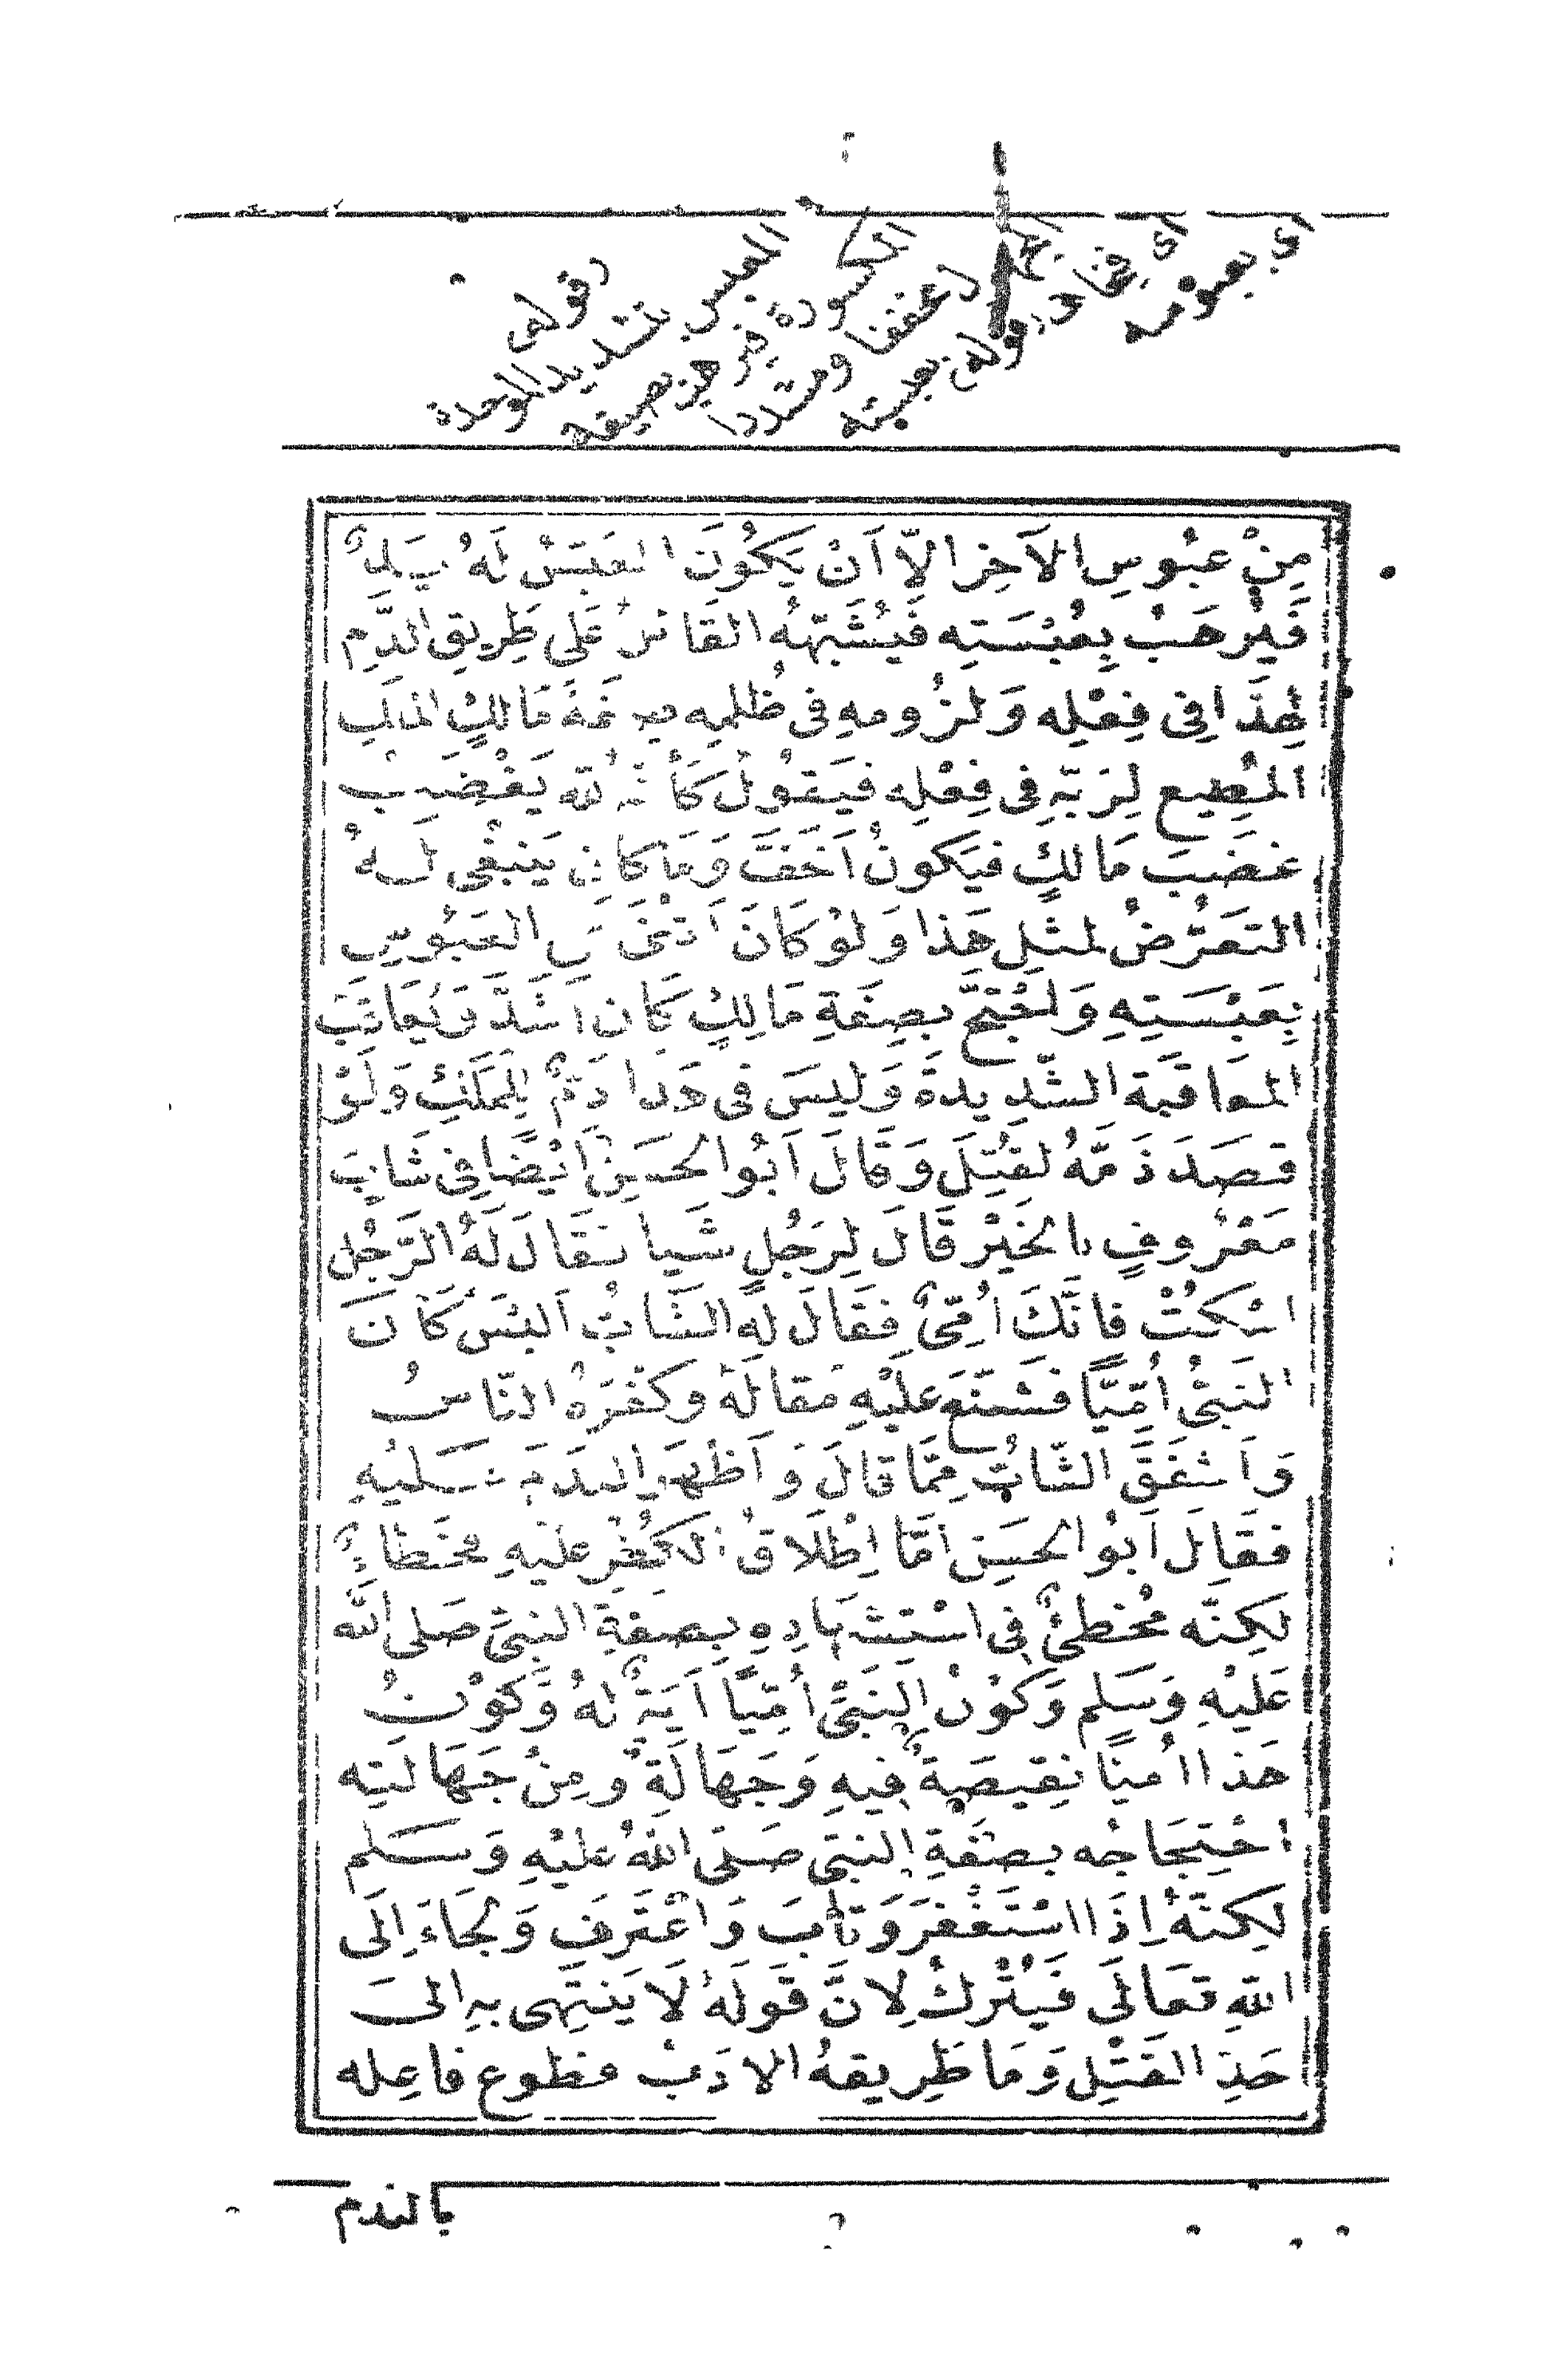 قوله
المعبس بتشديد الموحدة
المكسورة
مخففا ومشددا
قوله بعبسته
مِنْ عبُوسِ الآخِر الاّ اَنْ يَكُونَ المعَبّسْ لَهُ يَدٌ
فَيُرْهَبُ بِعُبْسَتِه فَيُشَبّهُهُ القَائلُ عَلَى طَرِيقِ الذّمِ
لِهَذَا فِى فِعْلِه وَلزُومهِ فى ظُلمِه صِفَةَ مَالِكٍ الملَكِ
المُطِيع لِرَبّهِ فِى فِعْلِه فيَقولُ كَأنّهُ لله يَغْضَبُ
غضَبَ مَالكٍ فيَكونُ اَخَفَّ وَمَا كانَ يَنبغْى لَهُ
التعَرُّضُ لمثلِ هَذا وَلَوْ كَانَ اَثْنَى عَلى العَبُوسِ
بِعَبْسَتِهِ وَاحْتجَّ بصِفَةِ مَالِكٍ كَانَ اَشَدَّ وَيُعَاقَبُ
المعَاقَبَة الشّدِيدةَ وَليسَ فى هَذا ذَمٌّ لِلمَلَكِ وَلَوْ
قصَدَ ذَمَّهُ لقُتِلَ وَقَالَ اَبُو الحسَنِ اَيْضًا فِى شَابٍّ
مَعْرُوفٍ بالخَيْرِ قَالَ لِرَجُلٍ شَيا فقَالَ لَهُ الرَّجُل
اسْكُتْ فانَّكَ اُمِّىٌّ فِقَالَ لهَ الشَّابُّ اَليْسَ كَانَ
النَبىُّ اُمِّيًّا فشَنّعَ عَليْهِ مَقالَهُ وَكَفّرَهُ النّاسُ
وَاَشفَقَ الشّابُّ مِمّا قالَ وَاَظْهَرَ الندَمَ عَليْهِ
فقَالَ اَبُو الحسَنِ اَمّا اِطْلَاقُ الكُفْرِ عليْهِ فخَطاءٌ
لكِنّه مُخطئٌ فى اسْتِشْهَادِهِ بِصفةِ النبىّ صَلى الله
عَليْهِ وَسَلم وَكَوْنُ النَبىِّ اُمّيًا اَيَةٌ لهُ وَكَوْنُ
هَذا اُميًا نقِيصَةٌ فِيهِ وَجَهَالَةٌ وَمِنْ جَهَالتِه
احْتِجَاجُه بصفَةِ النبى صَلّى اللهُ عَليْهِ وَسَلم
لكِنّهُ اِذَا اسْتَغْفرَ وَتَابَ وَاعْتَرَفَ وَلجَاءَ اِلَى
اللهِ تعَالَى فَيُتْركُ لِانَّ قَولَهُ لَا يَنتَهِى بِهِ الىَ
حَدِّ القَتْلِ وَمَا طَرِيقهُ الادَبُ فطوع فاعِله
بالندم